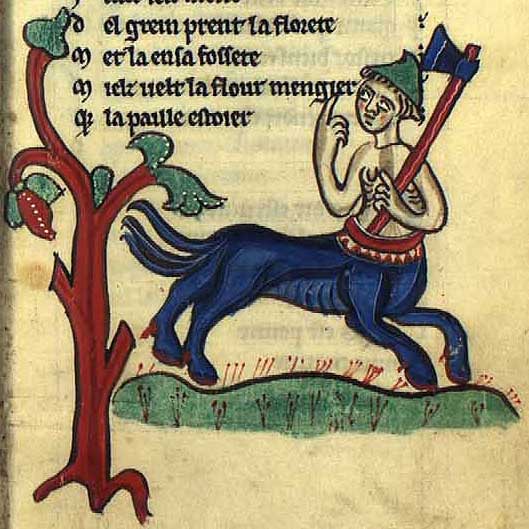 D el grein prent la florete
M et la en sa fossete
M ielz uelt la flour mengier
Q̃ la paille estoier